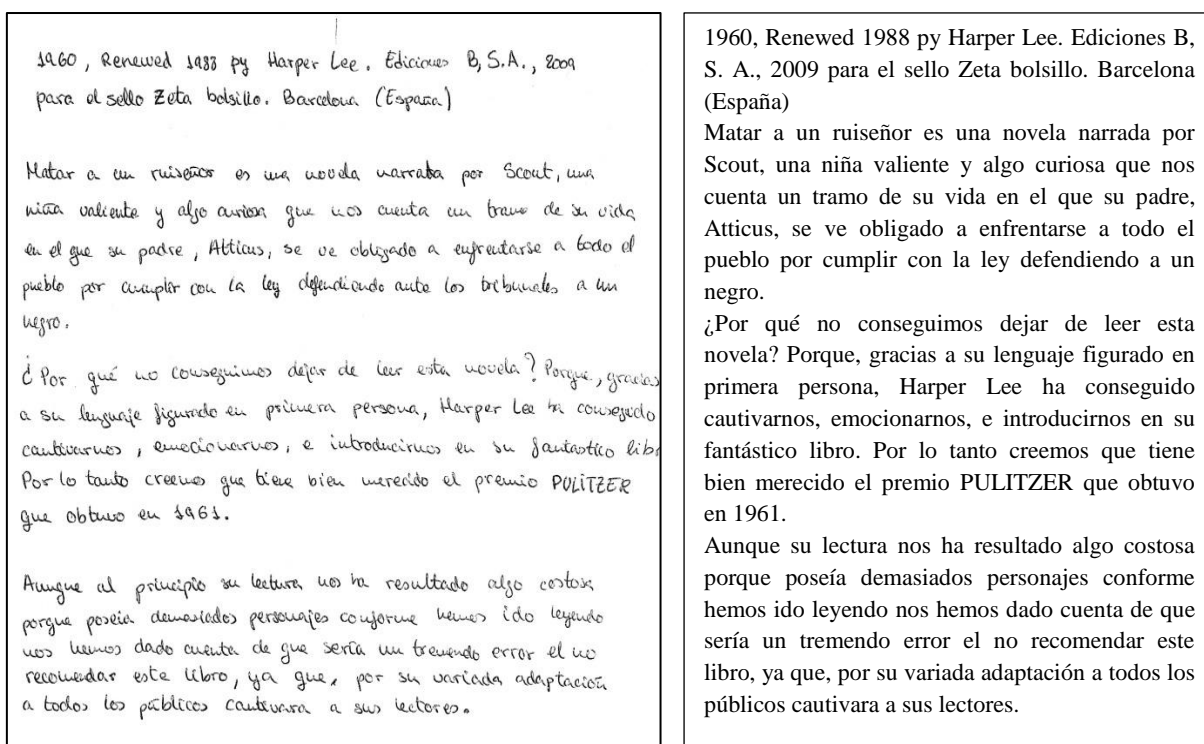 1960, Renewed 1988 py Harper Lee. Ediciones B, S.A., 2009
para el sello Zeta bolsillo. Barcelona (España)
Matar a un ruiseñor es una novela narraba por Scout, una
niña valiente y algo curiosa que nos cuenta un tramo de su vida
en el que su padre, Atticus, se ve obligado a enfrentarse a todo el
pueblo por cumplir con la ley defendiendo ante los tribunales a un
negro.
¿Por qué no conseguimos dejar de leer esta novela? Porque, gracias
a su lenguaje figurado en primera persona, Harper Lee ha conseguido
cautivarnos, emocionarnos, e introducirnos en su fantastico libr
Por lo tanto creemos que tiene bien merecido el premio PULITZER
que obtuvo en 1961.
Aunque al principio su lectura nos ha resultado algo costosa
porque poseia demasiados personajes conforme hemos ido leyendo
nos hemos dado cuenta de que sería un tremendo error el no
recomendar este libro, ya que, por su variada adaptación
a todos los públicos cautivara a sus lectores.
1960, Renewed 1988 py Harper Lee. Ediciones B,
S. A., 2009 para el sello Zeta bolsillo. Barcelona
(España)
Matar a un ruiseñor es una novela narrada por
Scout, una niña valiente y algo curiosa que nos
cuenta un tramo de su vida en el que su padre,
Atticus, se ve obligado a enfrentarse a todo el
pueblo por cumplir con la ley defendiendo a un
negro.
¿Por qué no conseguimos dejar de leer esta
novela? Porque, gracias a su lenguaje figurado en
primera persona, Harper Lee ha conseguido
cautivarnos, emocionarnos, e introducirnos en su
fantástico libro. Por lo tanto creemos que tiene
bien merecido el premio PULITZER que obtuvo
en 1961.
Aunque su lectura nos ha resultado algo costosa
porque poseía demasiados personajes conforme
hemos ido leyendo nos hemos dado cuenta de que
sería un tremendo error el no recomendar este
libro, ya que, por su variada adaptación a todos los
públicos cautivara a sus lectores.